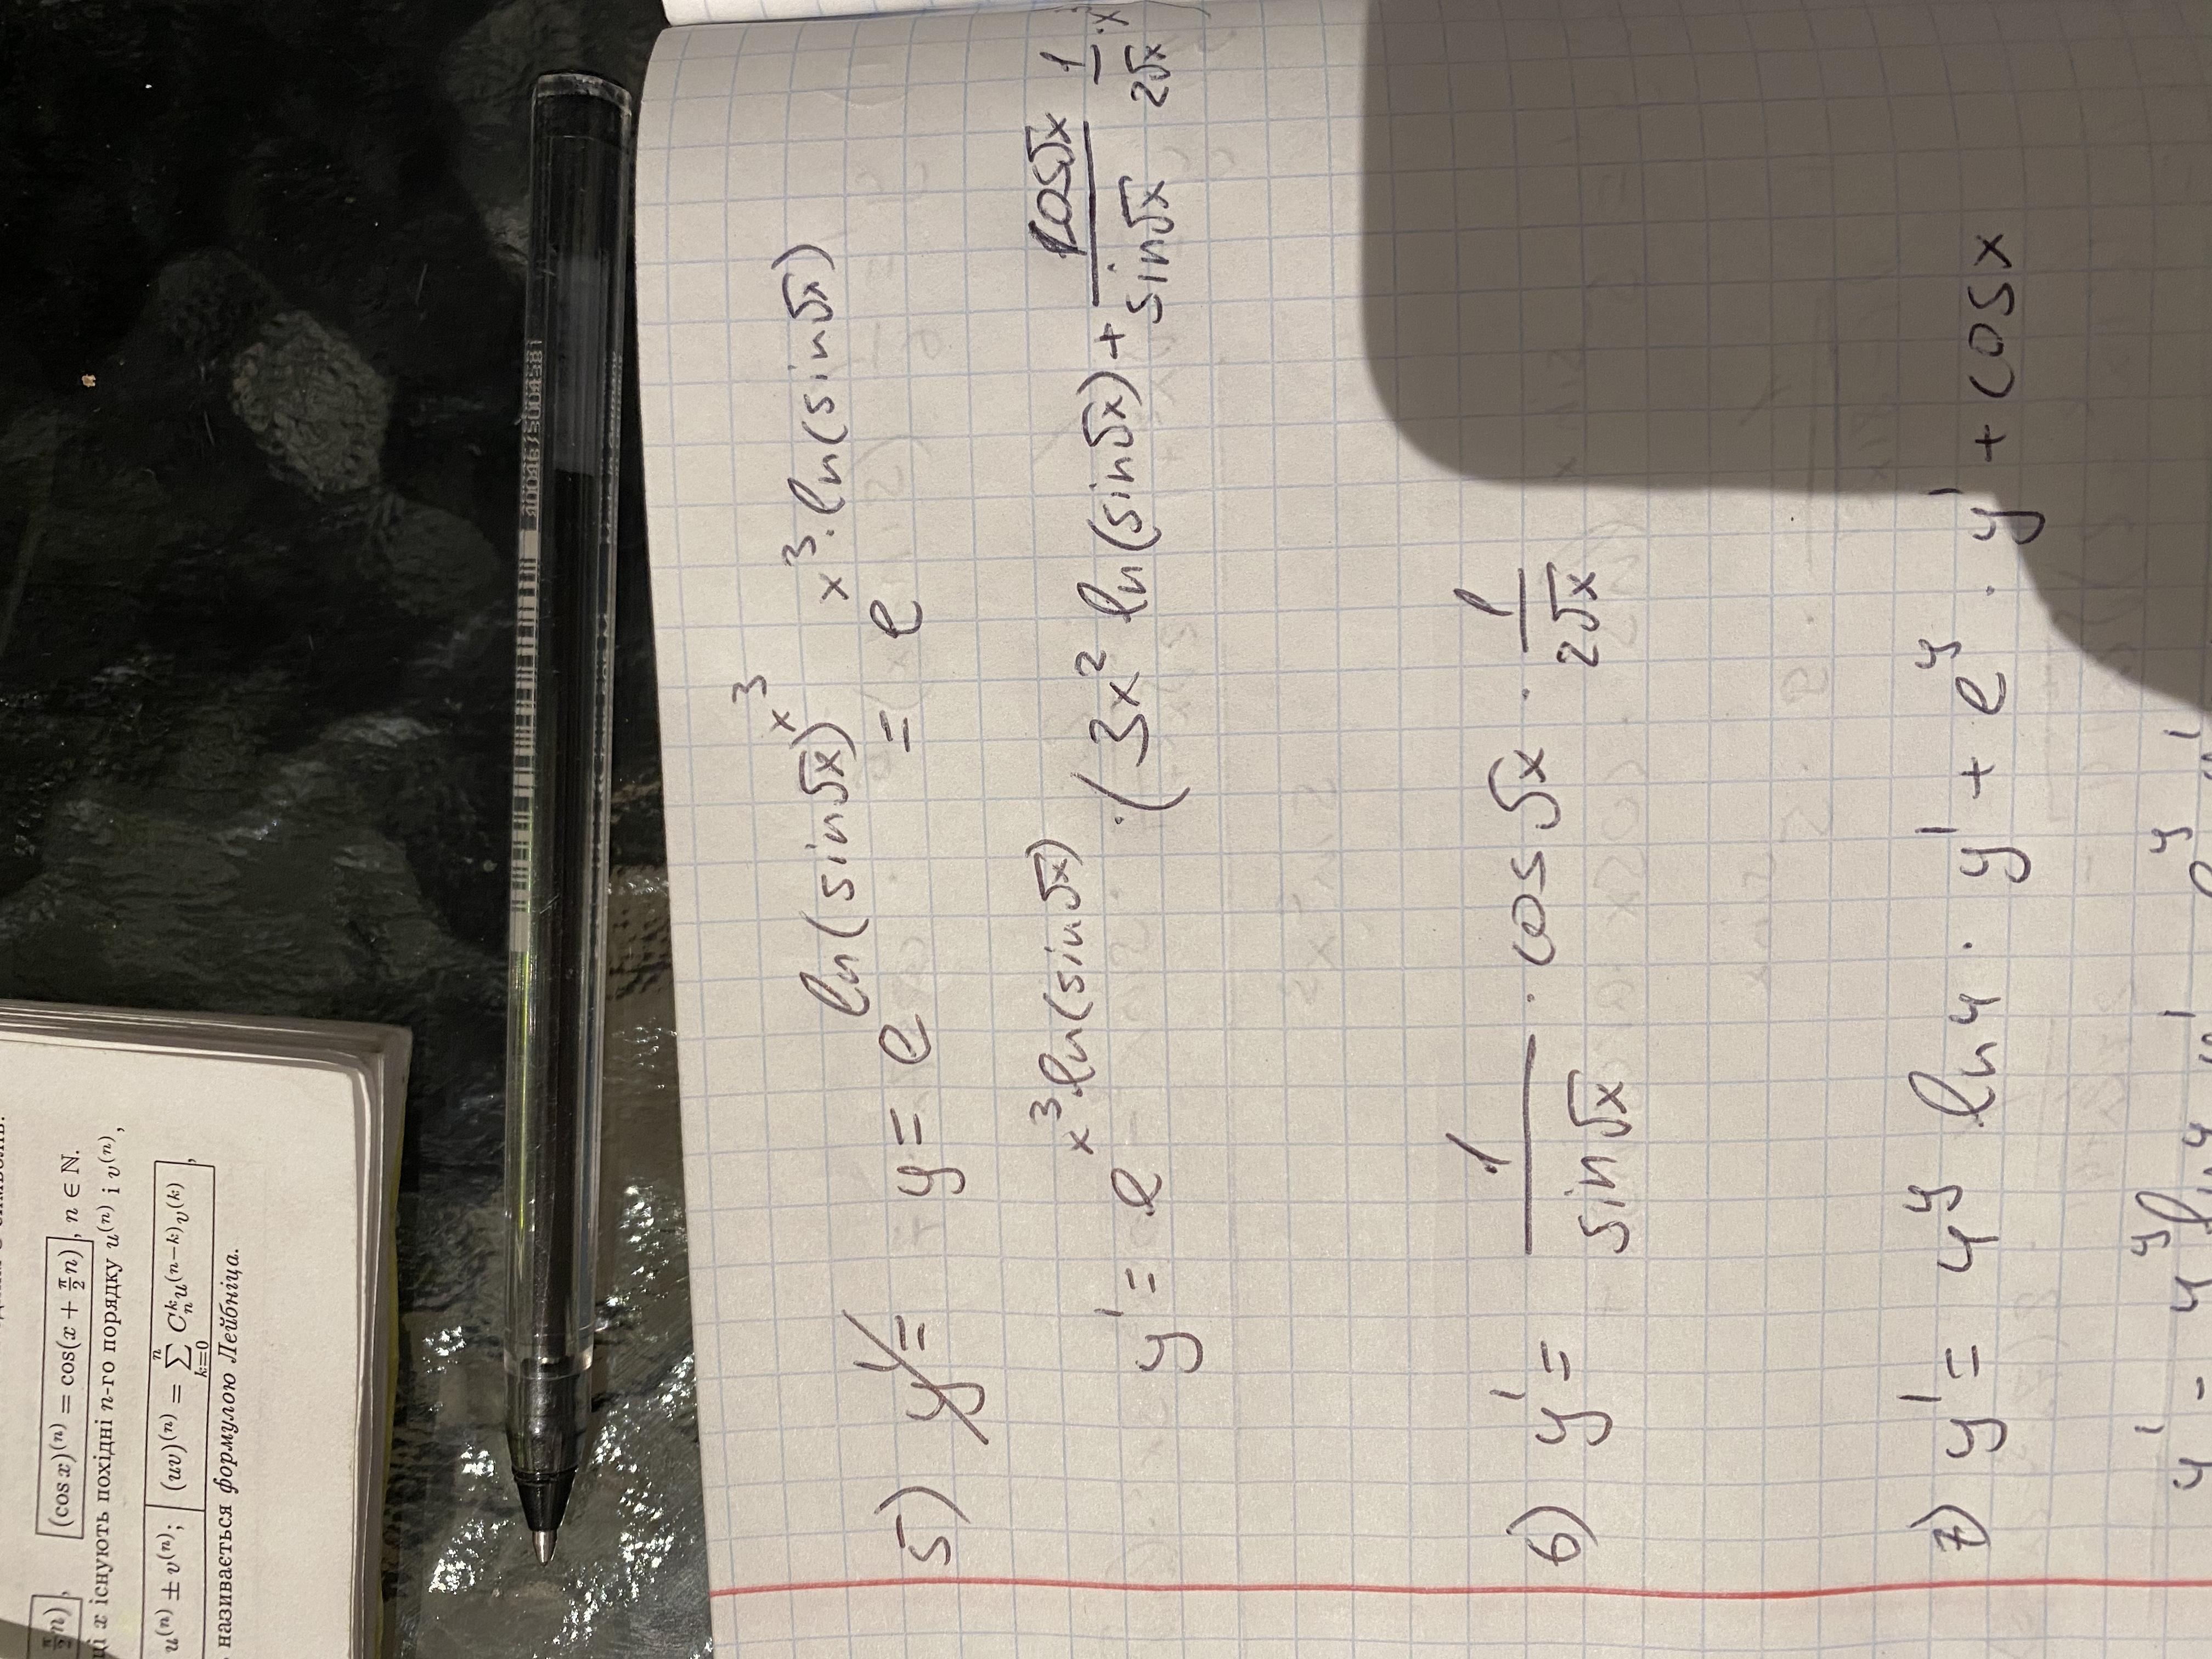 (cos x)⁽ⁿ⁾ = cos(x + π/2 n), n ∈ ℕ.
x існують похідні n-го порядку u⁽ⁿ⁾ і v⁽ⁿ⁾,
u⁽ⁿ⁾ ± v⁽ⁿ⁾; (uv)⁽ⁿ⁾ = ∑_{k=0}^{n} C_n^k u⁽ⁿ⁻ᵏ⁾v⁽ᵏ⁾,
називається формулою Лейбніца.
40046/5004381
5) y= y = e^{ln(sin√x)^{x^3}} = e^{x^3·ln(sin√x)}
y' = e^{x^3·ln(sin√x)} ·(3x² ln(sin√x) + cos√x/sin√x · 1/(2√x) · x³
6) y' = 1/sin√x · cos√x · 1/(2√x)
7) y' = 4^y ln4 · y' + e^y · y' + cosx